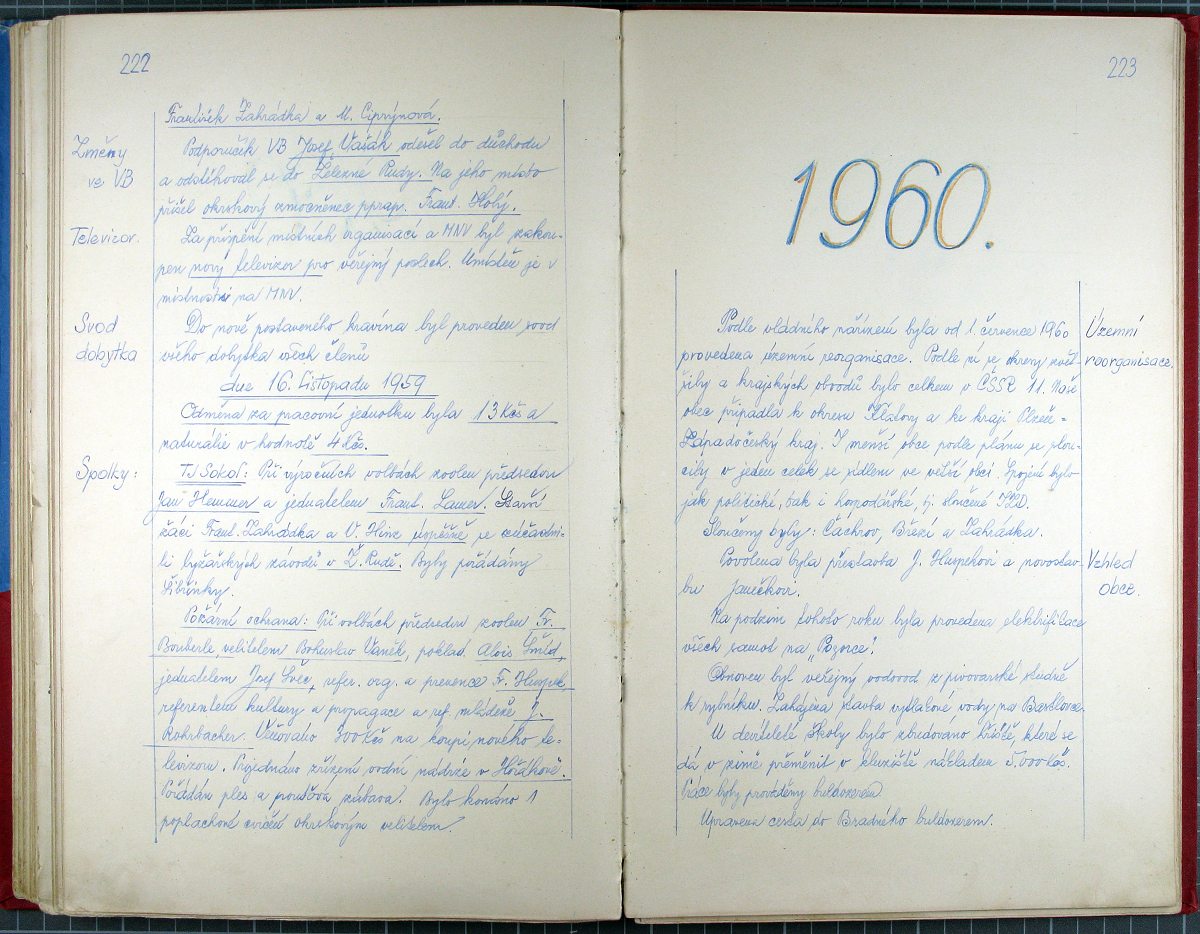 222
František Zahrádka a M. Ciprýnová.
Změny
ve VB
Podporučík VB Josef Vašák odešel do důchodu
a odstěhoval se do Železné Rudy. Na jeho místo
přišel okrskový zmocněnec pprap. Frant. Holý.
Televizor.
Za přispění místních organisací a MNV byl zakou-
pen nový televizor pro veřejný poslech. Umístěn je v
místnosti na MNV.
Svod
dobytka
Do nově postaveného kravína byl proveden svod
všeho dobytka všech členů
dne 16. Listopadu 1959
Odměna za pracovní jednotku byla 13 Kčs a
naturálie v hodnotě 4 Kčs.
Spolky:
TJ Sokol: Při výročních volbách zvolen předsedou
Jan Hemmer a jednatelem Frant. Lanzer. Starší
žáci Frant. Zahrádka a V. Hinz úspěšně se zúčastni-
li lyžařských závodů v Ž. Rudě. Byly pořádány
Šibřinky.
Požární ochrana: Při volbách předsedou zvolen Fr.
Bouberle, velitelem Bohuslav Vaněk, poklad. Alois Šmíd,
jednatelem Josef Švec, refer. org. a prevence Fr. Huspek,
referentem kultury a propagace a ref. mládeže J.
Rohrbacher. Věnováno 300 Kčs na koupi nového te-
levizoru. Projednáno zřízení vodní nádrže v Hořákově.
Pořádán ples a pouťová zábava. Bylo konáno 1
poplachové cvičení okrskovým velitelem.
223
1960.
Podle vládního nařízení byla od 1. července 1960
provedena územní reorganisace. Podle ní se okresy zvět-
šily a krajských obvodů bylo celkem v ČSSR 11. Naše
obec připadla k okresu Klatovy a ke kraji Plzeň =
Západočeský kraj. I menší obce podle plánu se slou-
čily v jeden celek se sídlem ve větší obci. Spojení bylo
jak politické, tak i hospodářské, tj. sloučené JZD.
Sloučeny byly: Čachrov, Březí a Zahrádka.
Územní
reorganisace.
Povolena byla přestavba J. Huspekovi a novostav-
bu Janečkovi.
Vzhled
obce.
Na podzim tohoto roku byla provedena elektrifikace
všech samot na „Pozorce".
Obnoven byl veřejný vodovod z pivovarské studně
k rybníku. Zahájena stavba výtlačové vody na
U devítileté školy bylo zbudováno hřiště, které se
dá v zimě přeměnit v kluziště nákladem 5.000 kčs.
Práce byly prováděny buldozerem.
Upravena cesta do Bradného buldozerem.